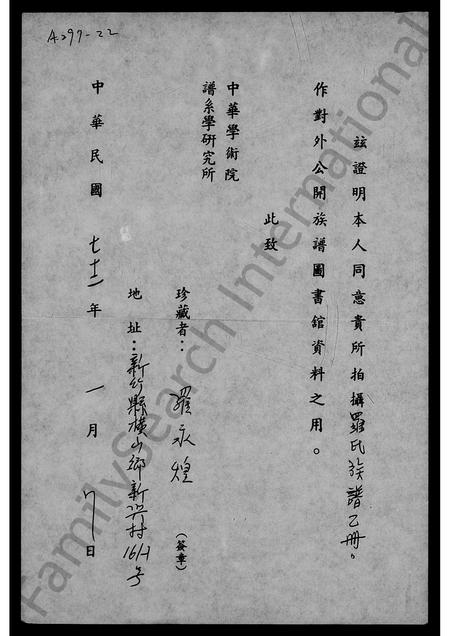 A297-22
茲證明本人同意貴所拍攝羅氏族譜乙冊。
作對外公開族譜圖書館資料之用。
此致
中華學術院
譜系學研究所
珍藏者：羅永煌（簽章）
地址：新竹縣橫山鄉新興村16/-1號
中華民國七十二年一月 日
FamilySearch International